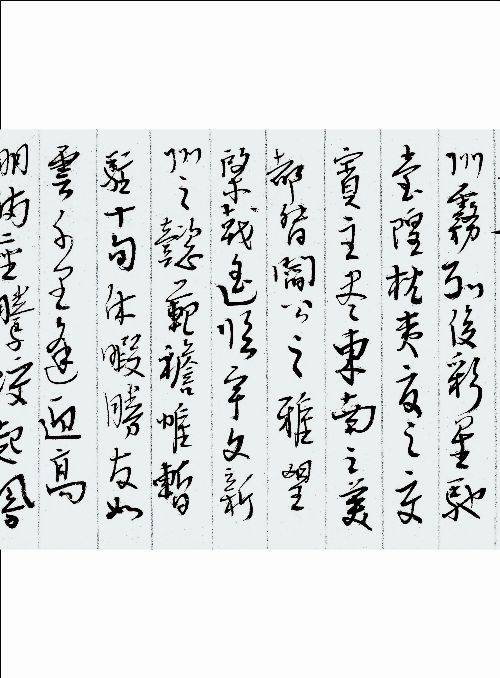 州霧列俊彩星馳
臺隍枕夷夏之交
賓主盡東南之美
都督閻公之雅望
棨戟遙臨宇文新
州之懿範襜帷暫
駐十旬休暇勝友如
雲千里逢迎高
朋滿座騰蛟起鳳